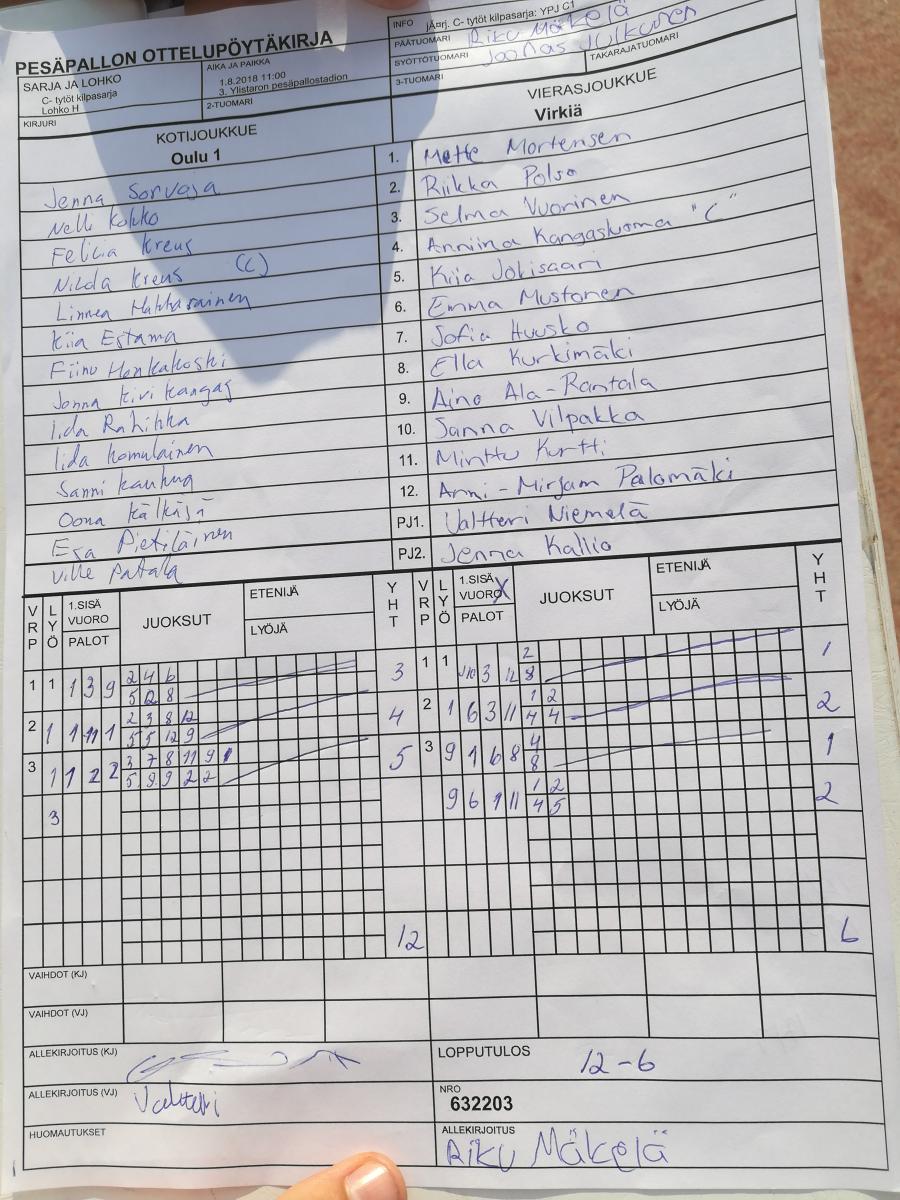 PESÄPALLON OTTELUPÖYTÄKIRJA
INFO jÃ¤rj. C- tytöt kilpasarja: YPJ C1
PÄÄTUOMARI Riku Mäkelä
SYÖTTÖTUOMARI Joonas Julkunen
TAKARAJATUOMARI
3-TUOMARI
SARJA JA LOHKO
C- tytöt kilpasarja
Lohko H
AIKA JA PAIKKA
1.8.2018 11:00
3. Ylistaron pesäpallostadion
2-TUOMARI
KIRJURI
KOTIJOUKKUE
Oulu 1
VIERASJOUKKUE
Virkiä
Jenna Sorvoja 1. Mette Mortensen
Nelli Kokko 2. Riikka Polso
Felicia Kreus 3. Selma Vuorinen
Kreus (C) 4. Anniina Kangasluoma "C"
Linnea 5. Kiia Jokisaari
Kiia Estama 6. Emma Mustonen
Honkakoski 7. Sofia Huusko
Jonna Kivikangas 8. Ella Kurkimäki
Iida Rahikka 9. Aino Ala-Rantala
Iida Komulainen 10. Sanna Vilpakka
Sanni 11. Minttu Kurtti
Oona 12. Anni-Mirjam Palomäki
Esa Pietiläinen PJ1. Valtteri Niemelä
Ville Patala PJ2. Jenna Kallio
VRP LYÖ 1.SISÄ VUORO PALOT JUOKSUT ETENIJÄ LYÖJÄ YHT
VRP LYÖ 1.SISÄ VUORO X PALOT JUOKSUT ETENIJÄ LYÖJÄ YHT
1 1 1 3 9 2 4 6 3
5 12 8
1 1 3 12 2 1
8
2 1 1 11 1 2 3 8 12 4
5 5 12 9
2 1 6 3 11 1 2 2
4 4
3 1 1 2 2 3 7 8 11 9 5
5 9 9 2 2
3 9 1 6 8 4 1
8
3
9 6 1 11 1 2 2
4 5
12
6
VAIHDOT (KJ)
VAIHDOT (VJ)
ALLEKIRJOITUS (KJ)
LOPPUTULOS 12-6
ALLEKIRJOITUS (VJ) Valtteri
NRO
632203
HUOMAUTUKSET
ALLEKIRJOITUS
Riku Mäkelä